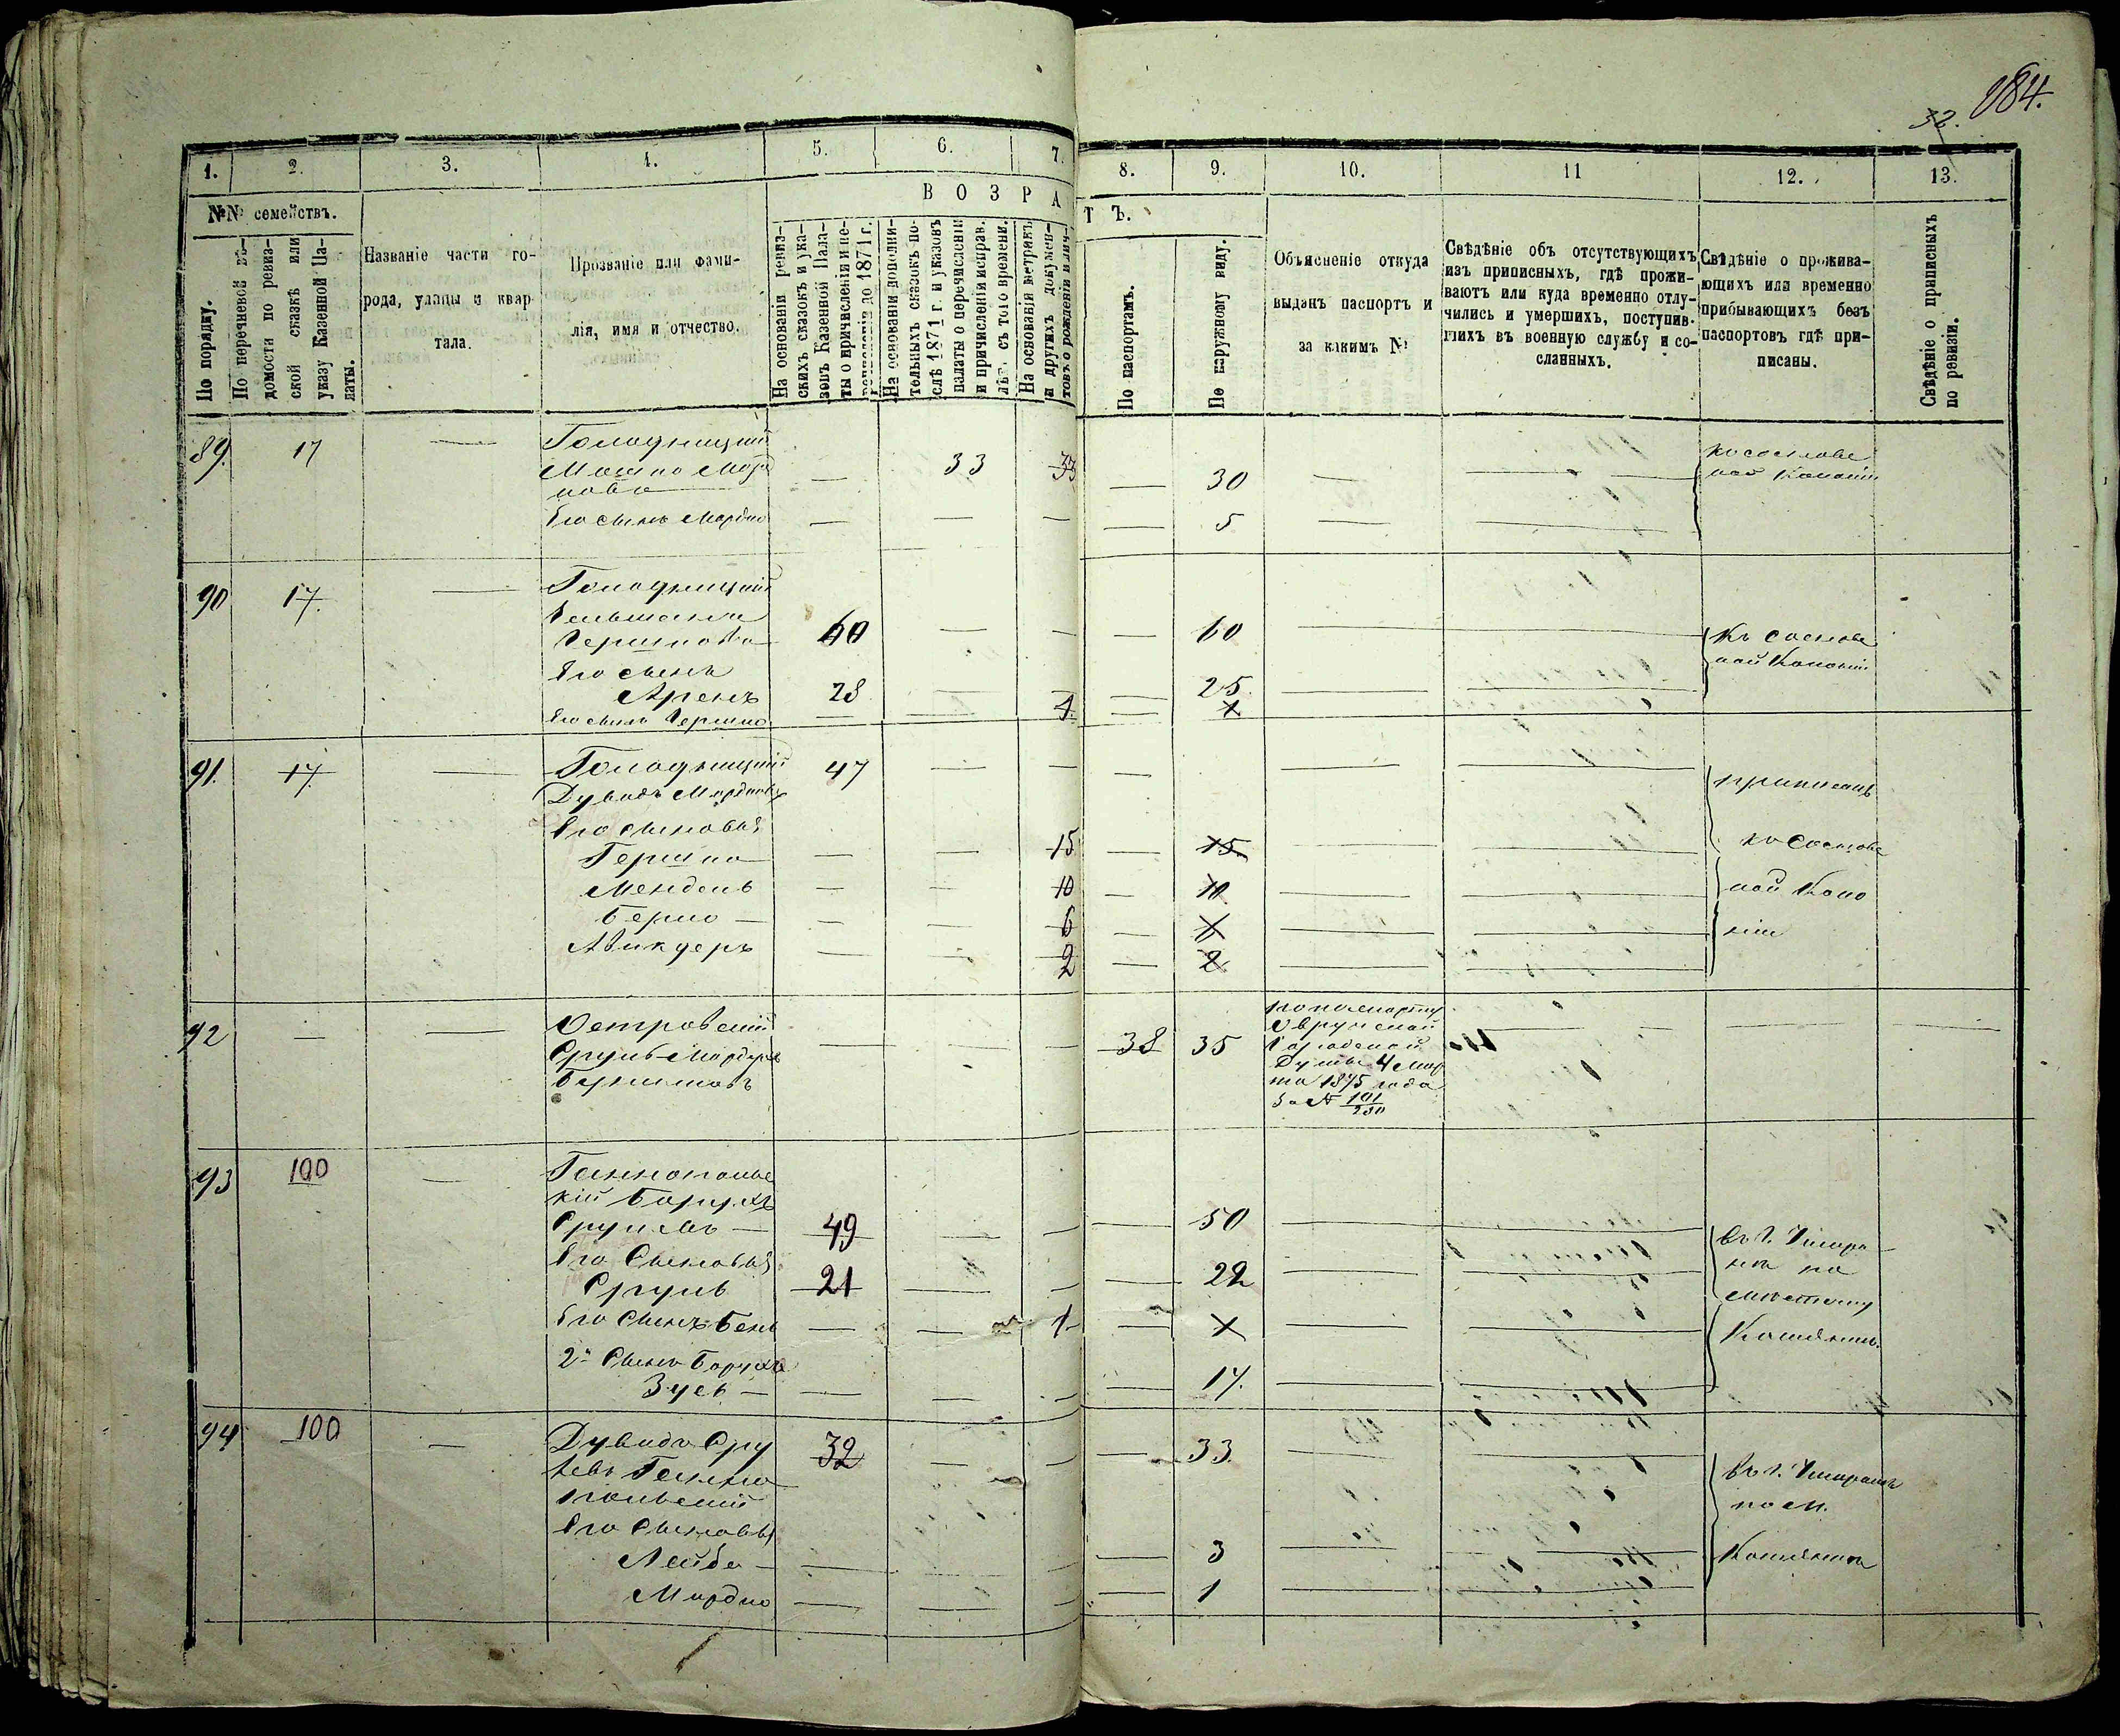 184.
32.
1. 2. 3. 4. 5. 6. 7. 8. 9. 10. 11 12. 13.
№№ семействъ.
По порядку.
По перечневой вѣ-
домости по ревиз-
ской сказкѣ или
указу Казенной Па-
латы.
Названіе части го-
рода, улицы и квар-
тала.
Прозваніе или фами-
лія, имя и отчество.
ВОЗРАСТЪ.
На основаніи ревиз-
скихъ сказокъ и ука-
зовъ Казенной Пала-
ты о причисленіи и пе-
до 1871 г.
На основаніи дополни-
тельныхъ сказокъ по-
слѣ 1871 г. и указовъ
палаты о перечисленіи
и причисленіи исправ.
лѣт. съ того времени.
На основаніи метрикъ
и другихъ докумен-
товъ о рожденіи и лич-
По паспортамъ.
По наружному виду.
Объясненіе откуда
выданъ паспортъ и
за какимъ №
Свѣдѣніе объ отсутствующихъ
изъ приписныхъ, гдѣ прожи-
ваютъ или куда временно отлу-
чились и умершихъ, поступив-
шихъ въ военную службу и со-
сланныхъ.
Свѣдѣніе о прожива-
ющихъ или временно
прибывающихъ безъ
паспортовъ гдѣ при-
писаны.
Свѣдѣніе о приписныхъ
по ревизіи.
89. 17
Голодницкій
Мошко Морд
ковъ 33 33 30
Его сынъ Мордко 5
90 17.
Голодницкій
Гершковъ 60 60
Его сынъ
Аренъ 28 25.
Его сынъ Гершко 1. 1
Къ Соснов
кой Колоніи
91. 17.
Голодницкій 47
Дувидъ Мордковъ
Его сыновья
Гершко 15 15
Мендель 10 10
Берко 6 6
Авикдеръ 2 2
приписанъ
къ Сосновс
кой Коло
ніи
92
Островскій
Сруль Мордухъ
38 35
по паспорту
Овручской
Городской
Думы 4 мар
та 1875 года
за № 101/230
93 100
Ганнопольс
кій Борухъ
Срулевъ 49 50
Его Сыновья
Сруль 21 22
Его Сынъ Бень 1 1
2й Сынъ Боруха
Зусь 17.
94 100
Дувидъ Сру 32 33.
левъ Ганно
польскій
Его Сыновья
Лейба 3
Мордко 1